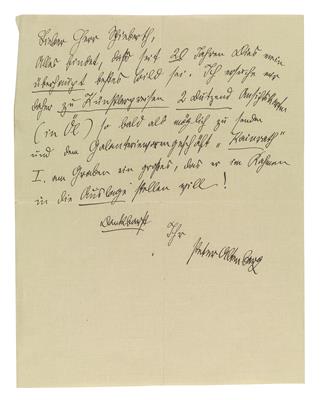 Lieber Herr
Alles findet, daß seit 20 Jahren dies mein
überhaupt bestes Bild sei. Ich ersuche mir
daher zu Künstlerpreisen 2 Dutzend Ansichtskarten
(in Öl) so bald als möglich zu senden
und dem Galanteriewarengeschäft „Kainrath“
I. am Graben ein großes, das er im Rahmen
in die Auslage stellen will!
Dankbarst
Ihr
Peter Altenberg